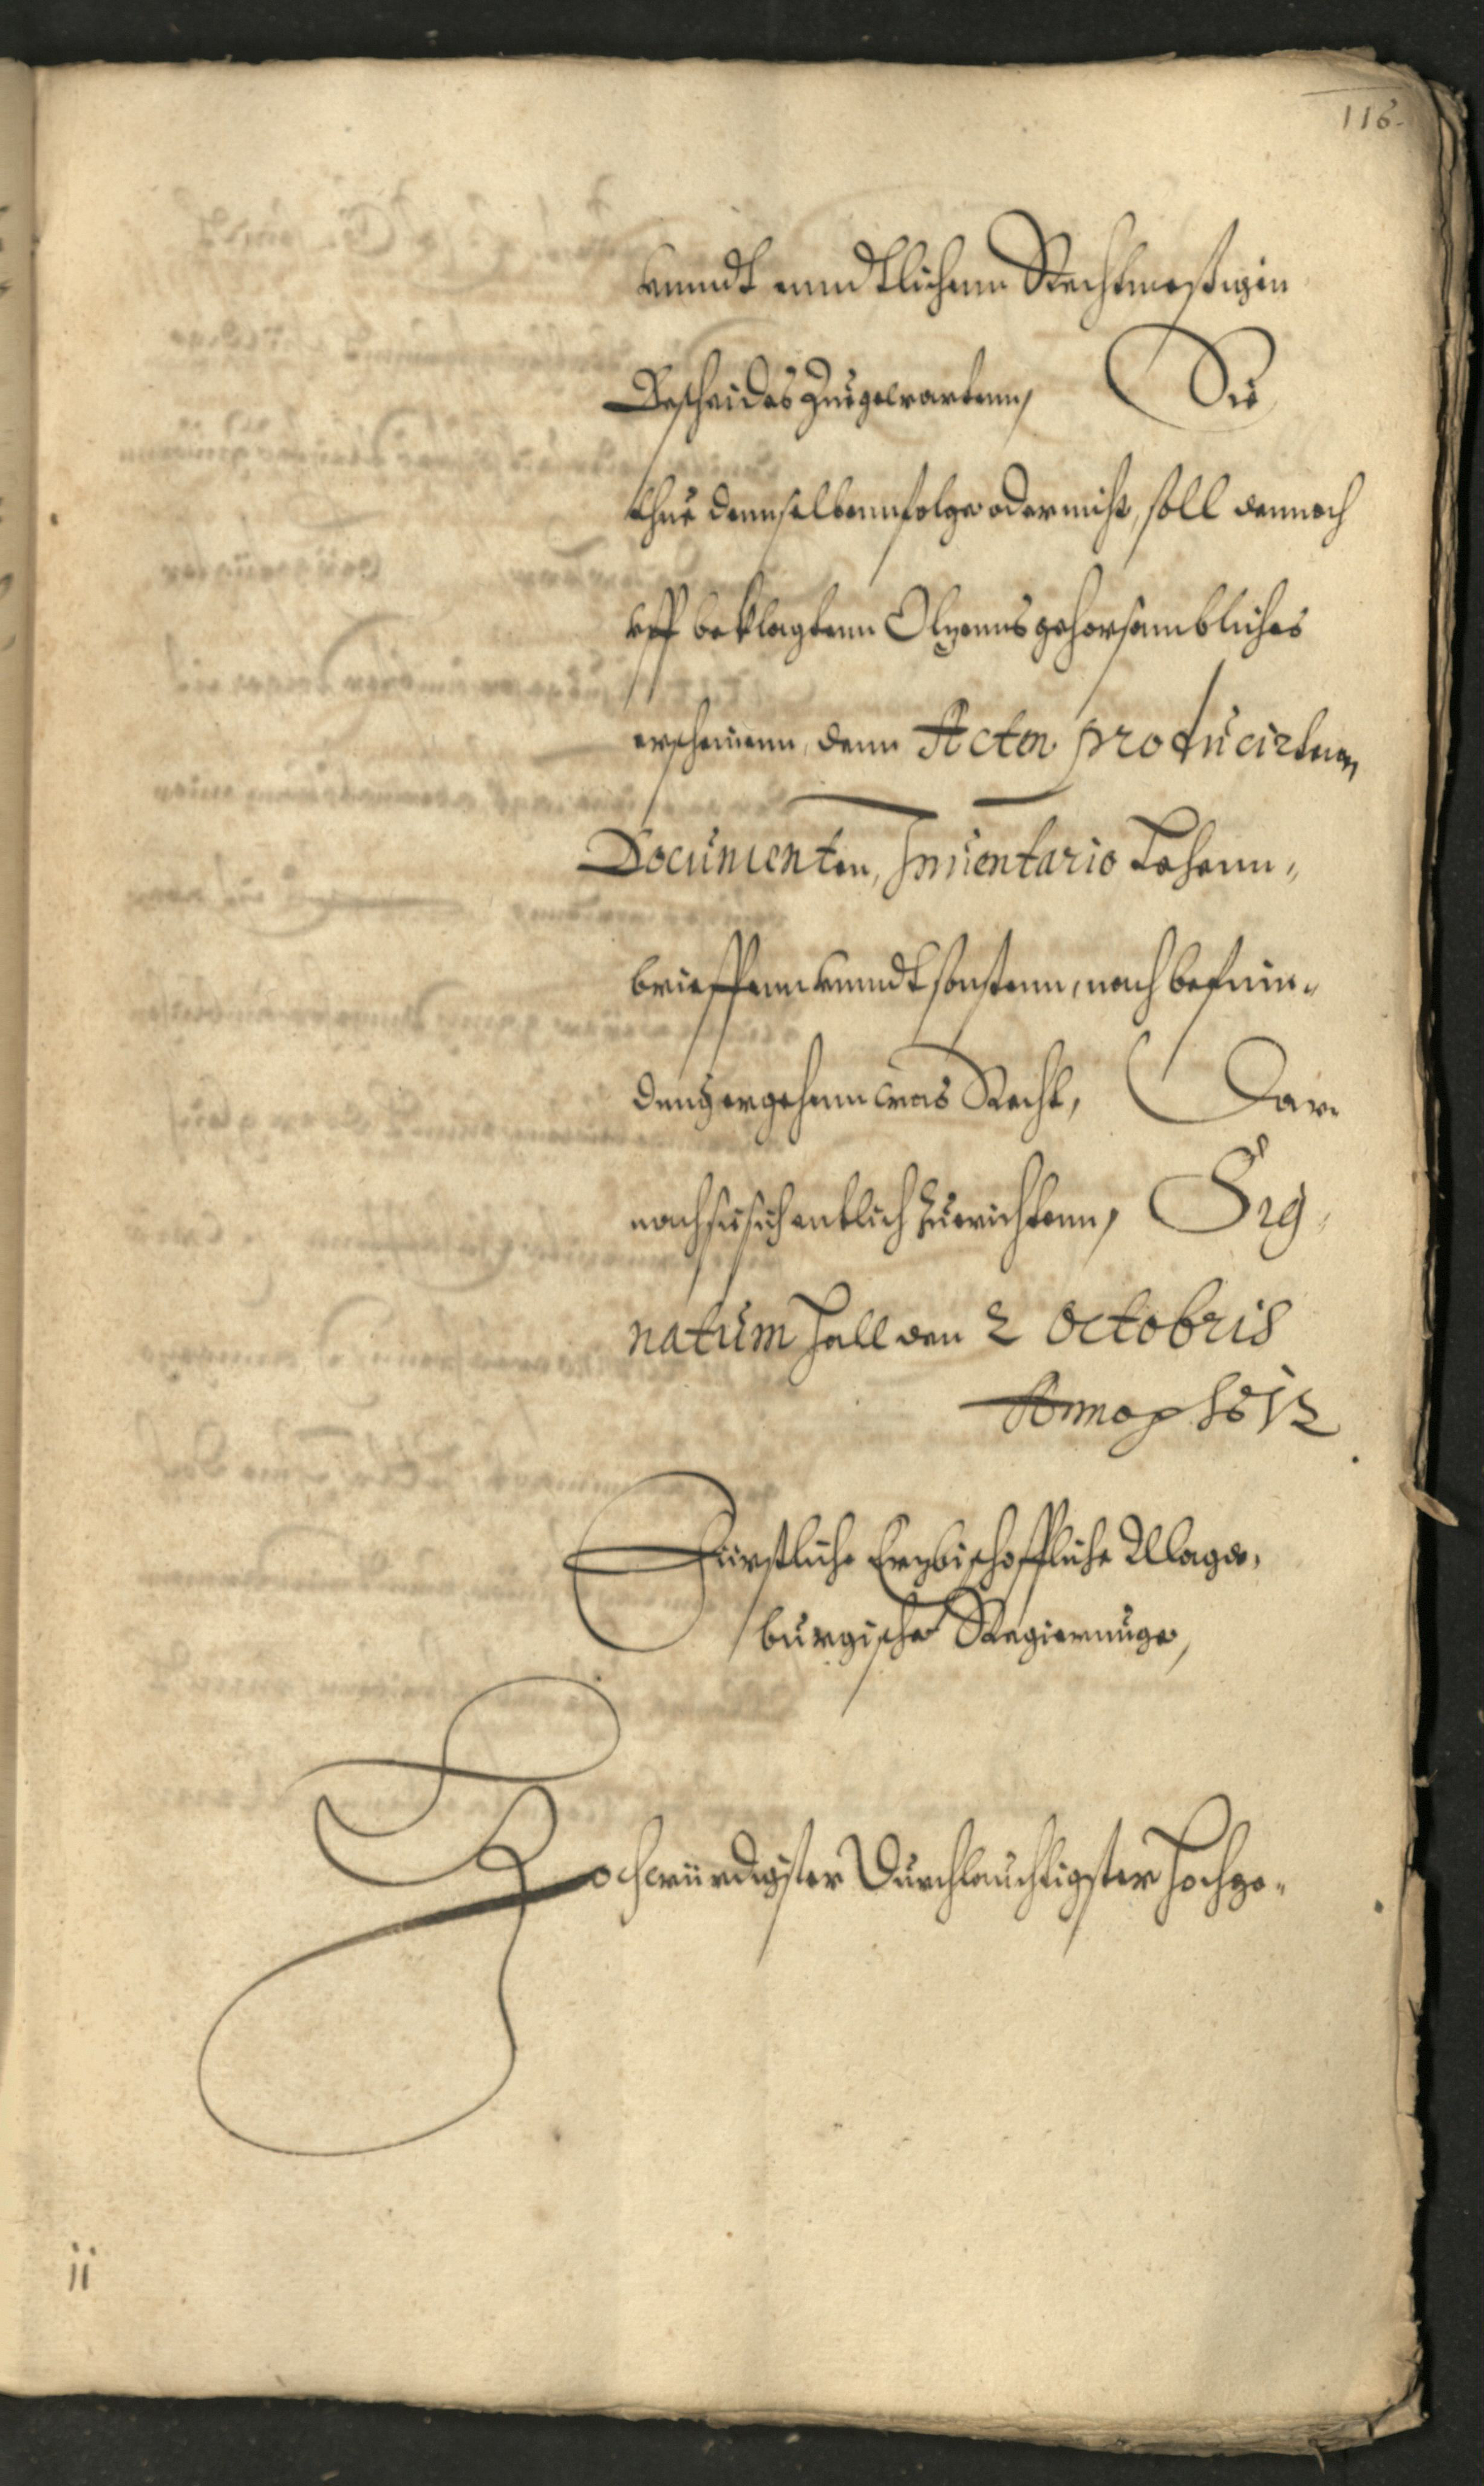 116.
vnndt enndtlichenn Rechtmeßigen
Bescheides Zuegewartenn, Sie
thue demselbenn folge oder nicht, soll dennoch
vff beklagtenn gehorsambliches
erscheinen, denn Acten producirten
Documenten, Inuentario Lehenn-
brieffenn vnndt sonstenn, nach befin-
dung ergehenn was Recht, Dar-
nach sie sich entlich Zuerichtenn, Sig-
natum Hall den 2 Octobris
Anno 1612
Fürstliche Erzbischoffliche Magde-
burgische Regierunge,
Hochwürdigster Durchlauchtigster Hochge-
ii